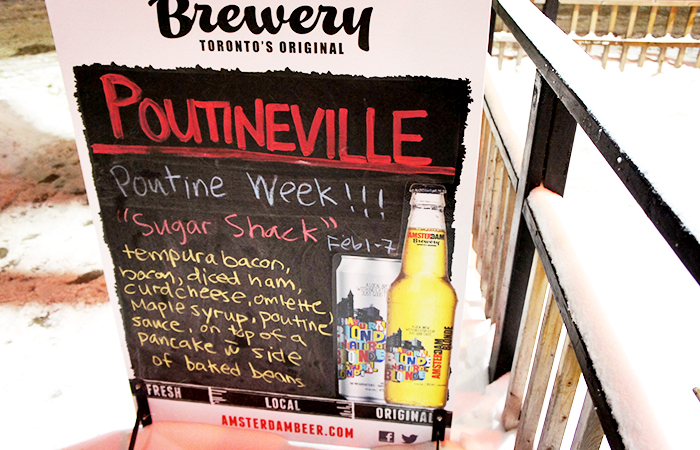 Brewery
TORONTO'S ORIGINAL
POUTINEVILLE
Poutine Week!!!
"Sugar Shack"
Feb 1-7
tempura bacon,
bacon, diced ham,
curd cheese, omlette,
maple syrup, poutine
sauce, on top of a
pancake w side
of baked beans
AMSTERDAM
Brewery
BLONDE
NATURAL
BLONDE
AMSTERDAM
BLONDE
FRESH
LOCAL
ORIGINAL
AMSTERDAMBEER.COM